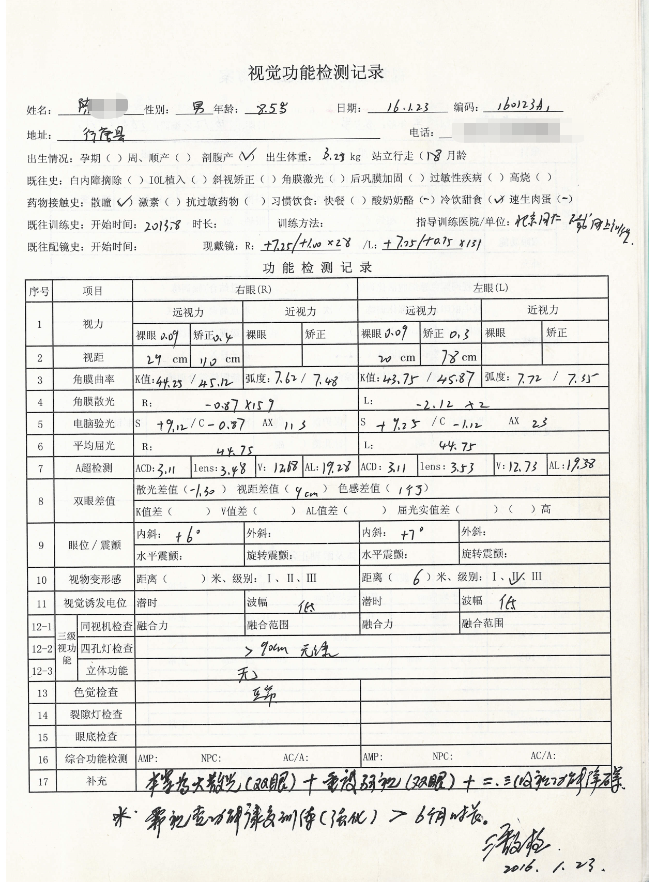 视觉功能检测记录
姓名: 陈 性别: 男 年龄: 8.5岁 日期: 16.1.23 编码: 160123A1
地址: 行唐县 电话:
出生情况: 孕期 ( ) 周、顺产 ( ) 剖腹产 (✓) 出生体重: 3.25 kg 站立行走 (18 月龄
既往史: 白内障摘除 ( ) IOL植入 ( ) 斜视矫正 ( ) 角膜激光 ( ) 后巩膜加固 ( ) 过敏性疾病 ( ) 高烧 ( )
药物接触史: 散瞳 (✓) 激素 ( ) 抗过敏药物 ( ) 习惯饮食: 快餐 ( ) 酸奶奶酪 (-) 冷饮甜食 (✓) 速生肉蛋 (-)
既往训练史: 开始时间: 2013.8 时长: 训练方法: 指导训练医院/单位: 北京同仁
既往配镜史: 开始时间: 现戴镜: R: +7.25/+1.00×28 /L: +7.25/+0.75×131
功能检测记录
序号 项目 右眼(R) 左眼(L)
1 视力 远视力 近视力 远视力 近视力
裸眼 0.09 矫正 0.4 裸眼 矫正 裸眼 0.09 矫正 0.3 裸眼 矫正
2 视距 29 cm 110 cm 20 cm 78 cm
3 角膜曲率 K值: 44.25 / 45.12 弧度: 7.62 / 7.48 K值: 43.75 / 45.87 弧度: 7.72 / 7.35
4 角膜散光 R: -0.87×159 L: -2.12×2
5 电脑验光 S +9.12 /C -0.87 AX 113 S +9.25 /C -1.12 AX 23
6 平均屈光 R: 44.75 L: 44.75
7 A超检测 ACD: 3.11 lens: 3.48 V: 12.68 AL: 19.28 ACD: 3.11 lens: 3.53 V: 12.73 AL: 19.38
8 双眼差值 散光差值 (-1.30) 视距差值 (9cm) 色感差值 (1个)
K值差 ( ) V值差 ( ) AL值差 ( ) 屈光实值差 ( ) ( ) 高
9 眼位/震颤 内斜: +6° 外斜: 内斜: +7° 外斜:
水平震颤: 旋转震颤: 水平震颤: 旋转震颤:
10 视物变形感 距离 ( ) 米、级别: I、II、III 距离 ( 6 ) 米、级别: I、II、III
11 视觉诱发电位 潜时 波幅 低 潜时 波幅 低
三级视功能
12-1 同视机检查 融合力 融合范围 融合力 融合范围
12-2 四孔灯检查 >90cm
12-3 立体功能 无
13 色觉检查 正常
14 裂隙灯检查
15 眼底检查
16 综合功能检测 AMP: NPC: AC/A: AMP: NPC: AC/A:
17 补充 (双眼) + 重度弱视(双眼) +
(强化) > 6个月时长。
2016.1.23.